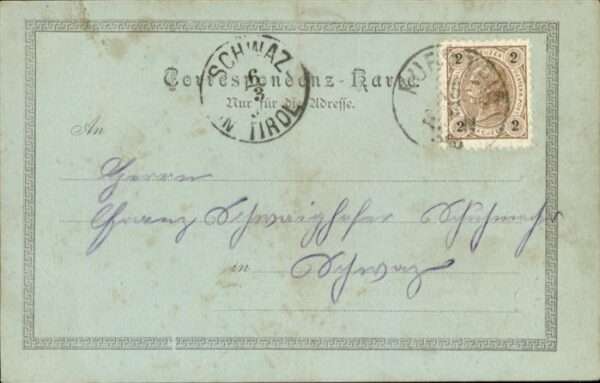 Correspondenz-Karte.
Nur für die Adresse.
SCHWAZ
6/3
IN TIROL
2 2
2 2
An
Herrn
Franz Schwaighofer Schuhmacher
in Schwaz